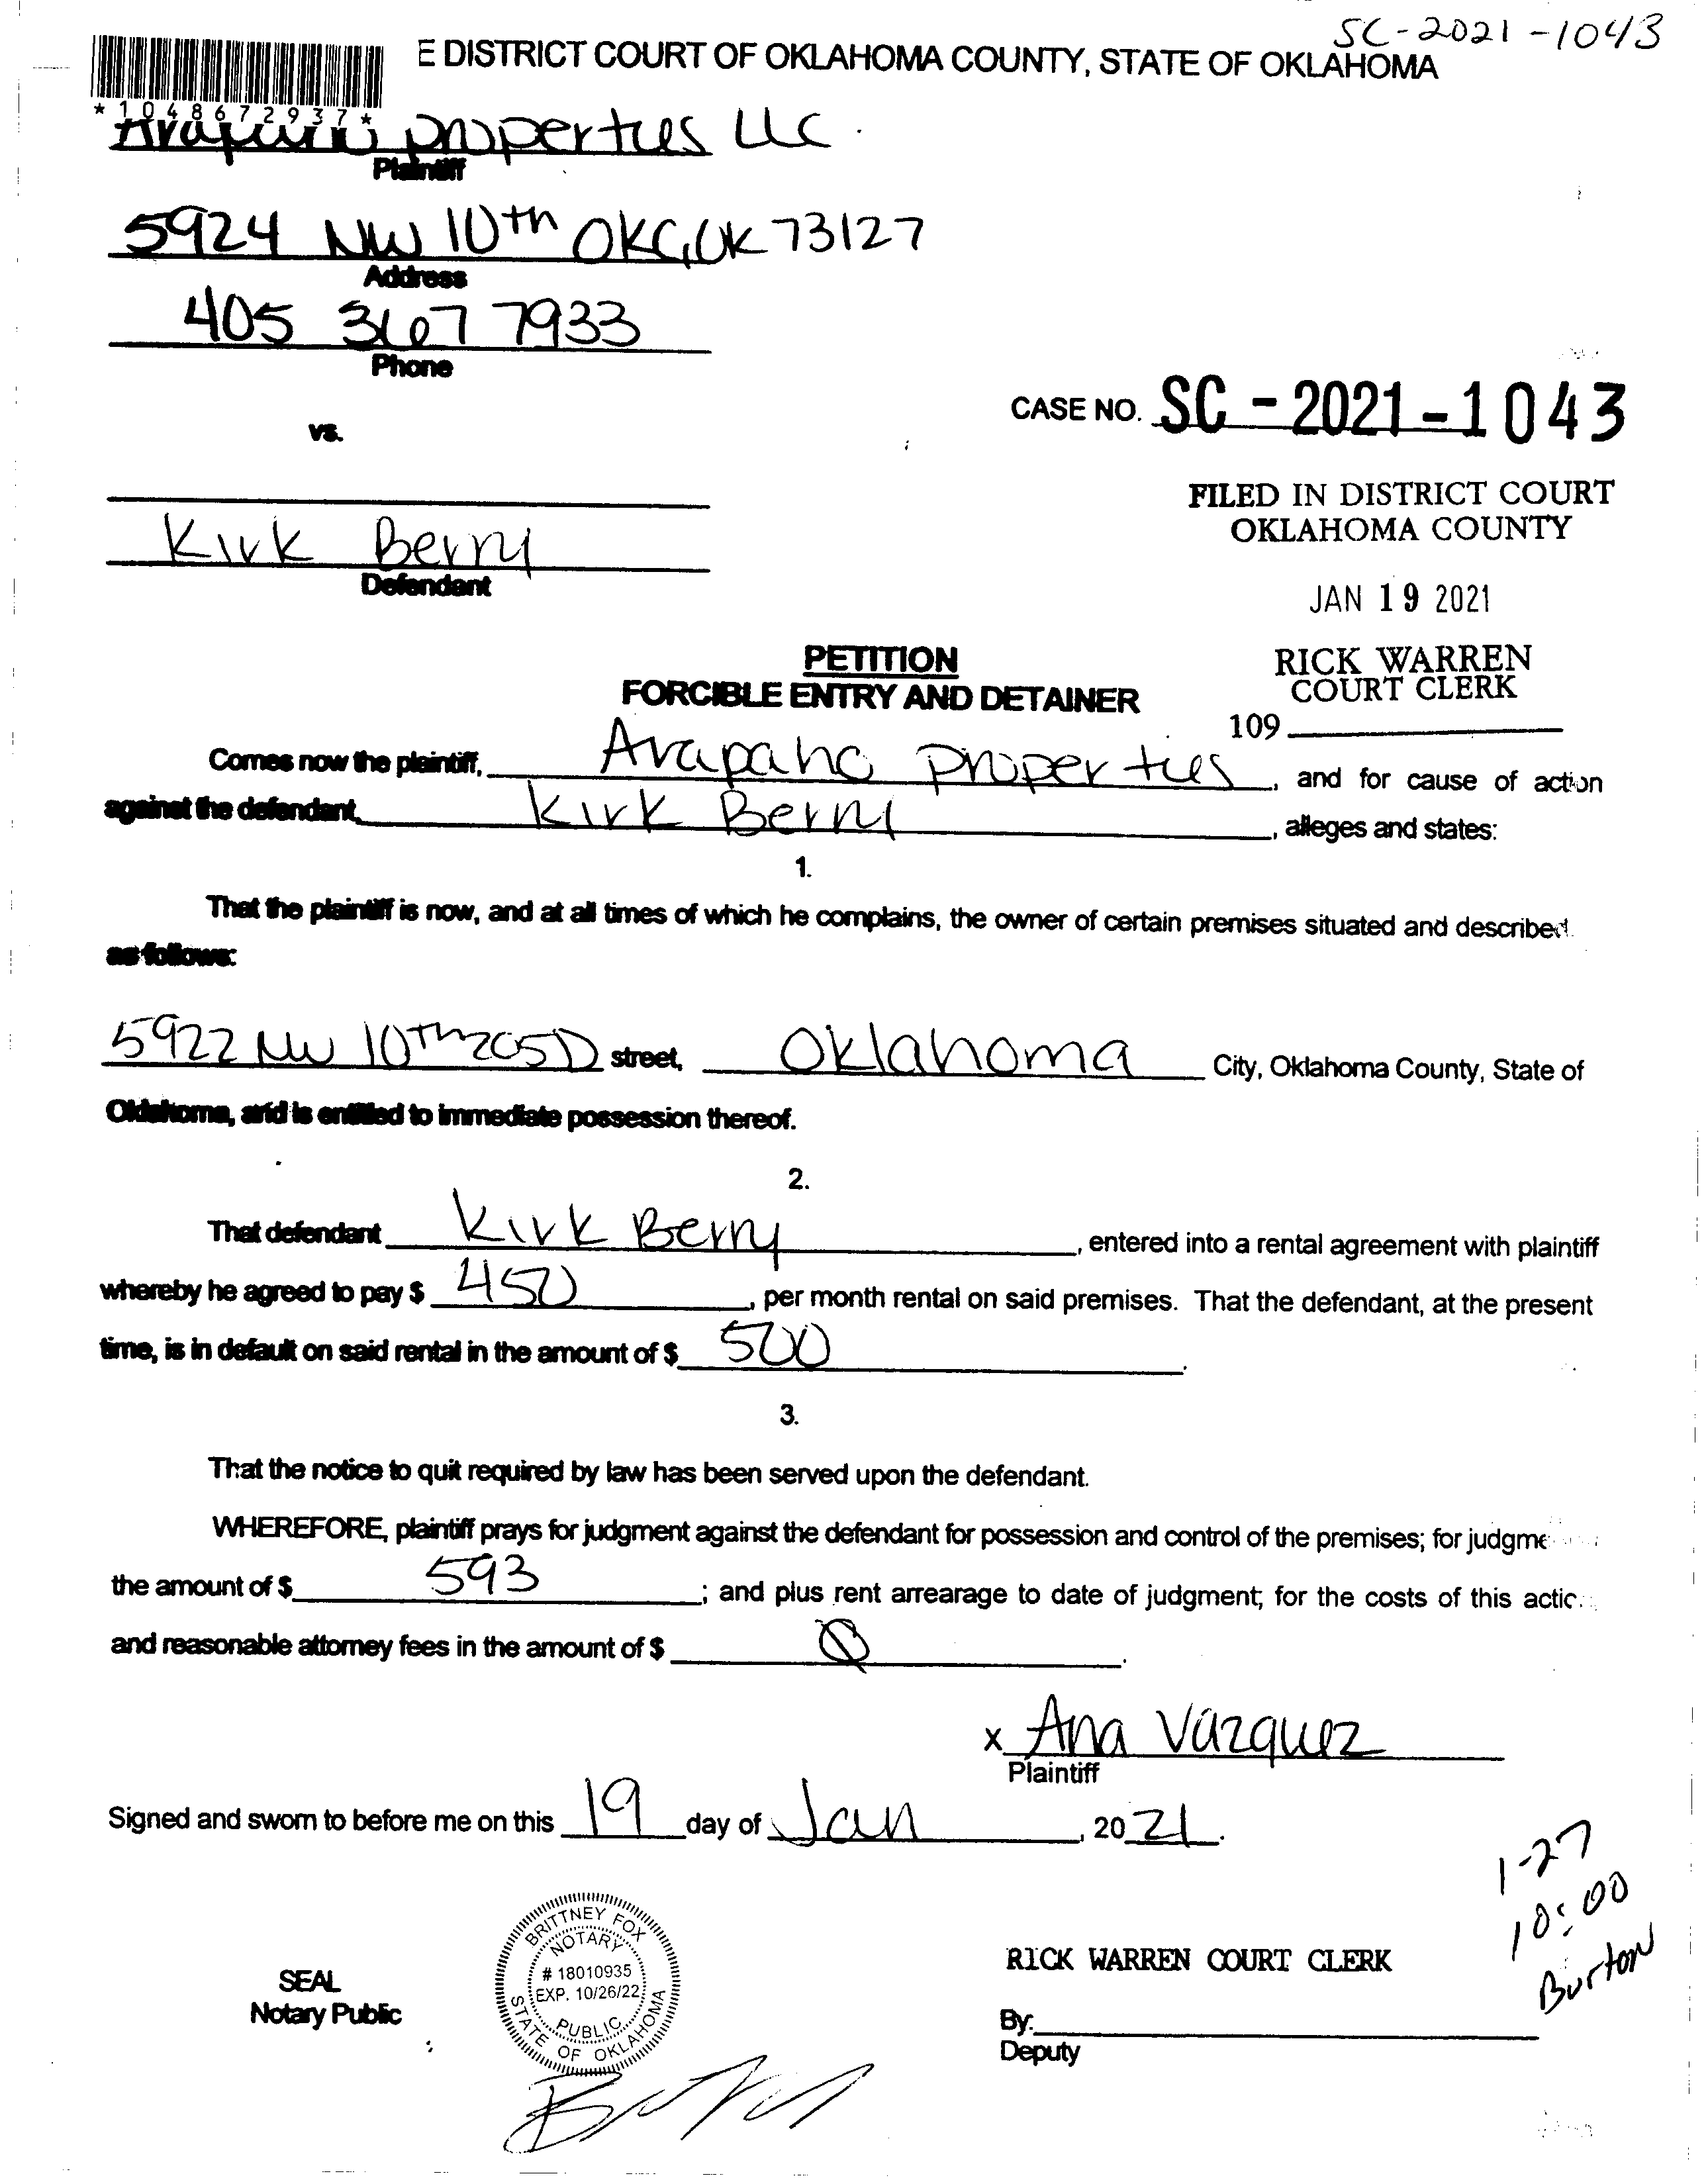 SC-2021-1043
E DISTRICT COURT OF OKLAHOMA COUNTY, STATE OF OKLAHOMA
*1048672937*
properties LLC.
Plaintiff
5924 NW 10th OKC, OK 73127
Address
405 367 7933
Phone
CASE NO. SC-2021-1043
vs.
FILED IN DISTRICT COURT
OKLAHOMA COUNTY
Kirk Berry
Defendant
JAN 19 2021
RICK WARREN
COURT CLERK
109
PETITION
FORCIBLE ENTRY AND DETAINER
Comes now the plaintiff, Arapaho properties, and for cause of action
against the defendant, Kirk Berry, alleges and states:
1.
That the plaintiff is now, and at all times of which he complains, the owner of certain premises situated and described
as follows:
5922 NW 10th 205D street, Oklahoma City, Oklahoma County, State of
Oklahoma, and is entitled to immediate possession thereof.
2.
That defendant Kirk Berry, entered into a rental agreement with plaintiff
whereby he agreed to pay $ 450, per month rental on said premises. That the defendant, at the present
time, is in default on said rental in the amount of $ 500.
3.
That the notice to quit required by law has been served upon the defendant.
WHEREFORE, plaintiff prays for judgment against the defendant for possession and control of the premises; for judgme
the amount of $ 593; and plus rent arrearage to date of judgment; for the costs of this actic
and reasonable attorney fees in the amount of $ 0.
x Ana Vazquez
Plaintiff
Signed and sworn to before me on this 19 day of Jan, 2021.
1-27
10:00
Burton
BRITTNEY FOX
NOTARY
# 18010935
EXP. 10/26/22
PUBLIC
STATE OF OKLAHOMA
SEAL
Notary Public
RICK WARREN COURT CLERK
By:
Deputy